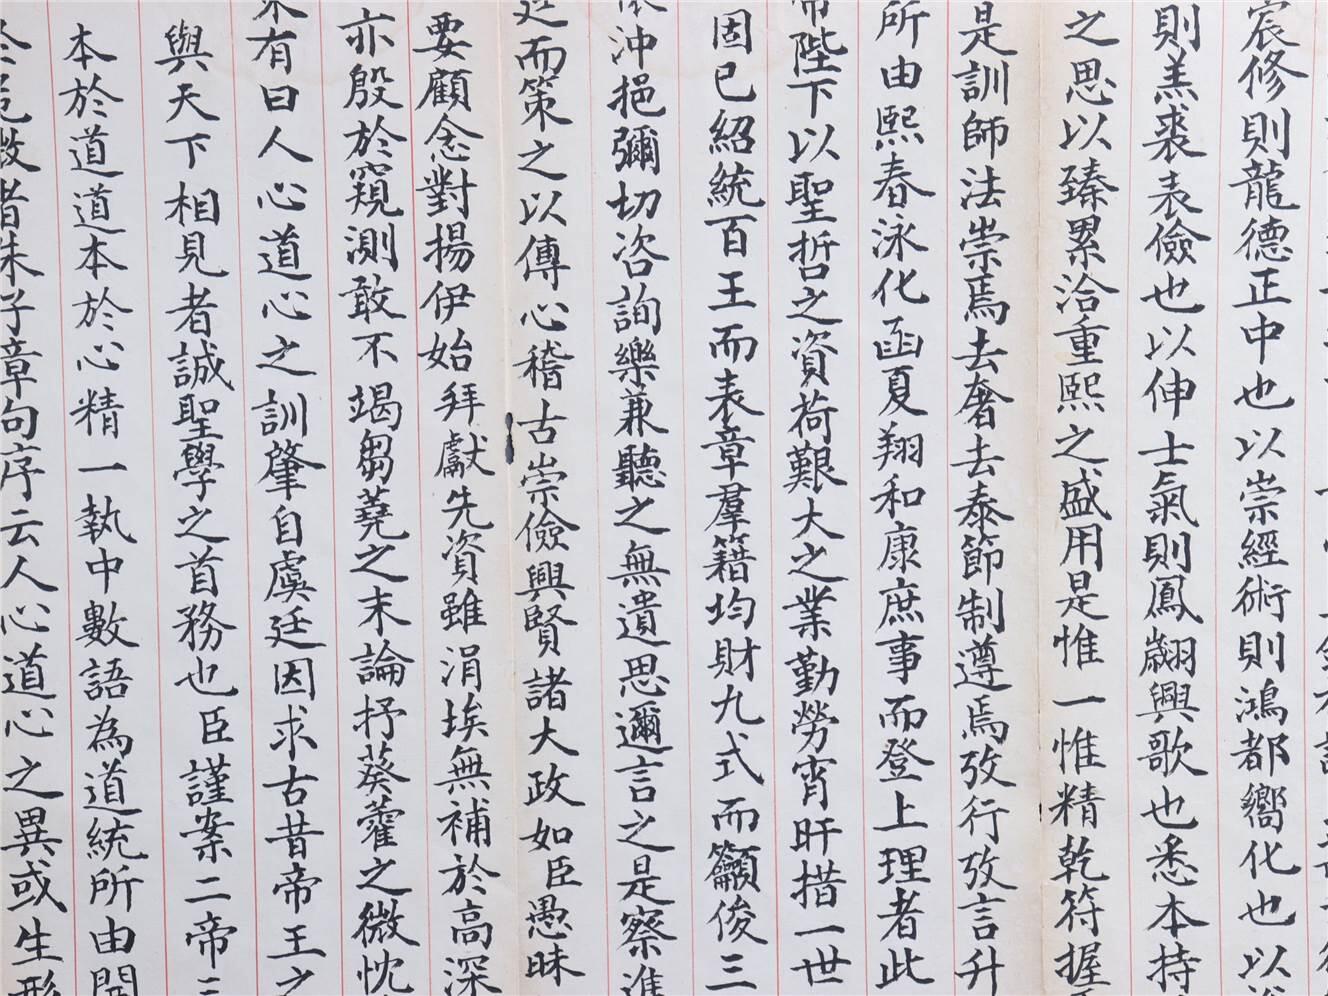 宸修則龍德正中也以崇經術則鴻都嚮化也以
則羔裘表儉也以伸士氣則鳳翽興歌也悉本持
之思以臻累洽重熙之盛用是惟一惟精乾符握
是訓師法崇焉去奢去泰節制遵焉攷行攷言升
所由熙春泳化函夏翔和康庶事而登上理者此
帝陛下以聖哲之資荷艱大之業勤勞宵旰措一世
固已紹統百王而表章羣籍均財九式而籲俊三
沖挹彌切咨詢樂兼聽之無遺思邇言之是察進
廷而策之以傳心稽古崇儉興賢諸大政如臣愚昧
要顧念對揚伊始拜獻先資雖涓埃無補於高深
亦殷於窺測敢不竭芻蕘之末論抒葵藿之微忱
有曰人心道心之訓肇自虞廷因求古昔帝王之
與天下相見者誠聖學之首務也臣謹案二帝三
本於道道本於心精一執中數語為道統所由開
微者朱子章句序云人心道心之異或生形